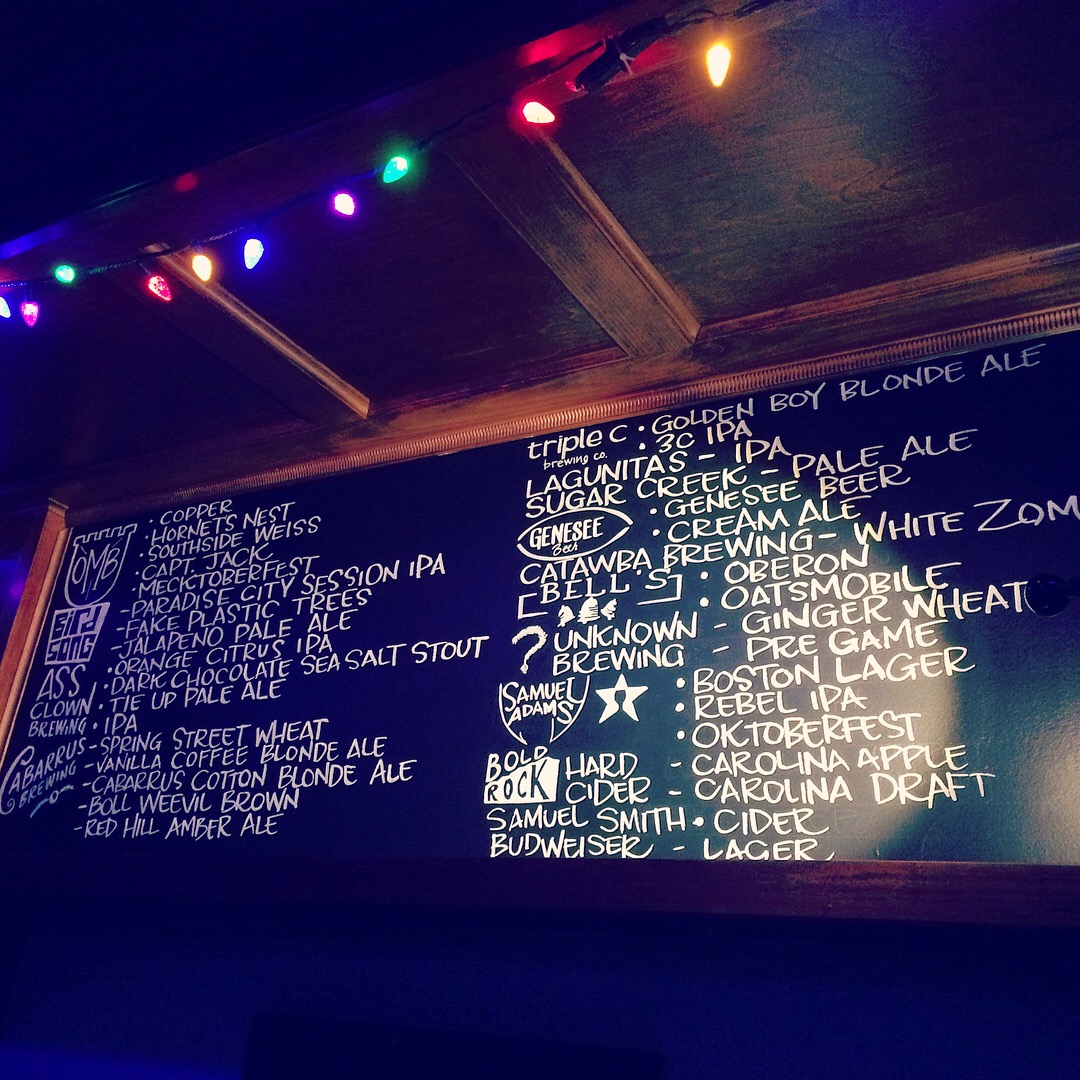 OMB
· COPPER
· HORNET'S NEST
· SOUTHSIDE WEISS
· CAPT. JACK
· MECKTOBERFEST
BiRD SONG
- PARADISE CITY SESSION IPA
- FAKE PLASTIC TREES
- JALAPENO PALE ALE
ASS CLOWN BREWING
· ORANGE CITRUS IPA
· DARK CHOCOLATE SEA SALT STOUT
· TIE UP PALE ALE
· IPA
CABARRUS BREWING
- SPRING STREET WHEAT
- VANILLA COFFEE BLONDE ALE
- CABARRUS COTTON BLONDE ALE
- BOLL WEEVIL BROWN
- RED HILL AMBER ALE
triple c brewing co.
· GOLDEN BOY BLONDE ALE
· 3C IPA
LAGUNITAS - IPA
SUGAR CREEK - PALE ALE
GENESEE Beer
· GENESEE BEER
· CREAM ALE
CATAWBA BREWING - WHITE ZOM
[BELL'S]
· OBERON
· OATSMOBILE
? UNKNOWN BREWING
- GINGER WHEAT
- PRE GAME
SAMUEL ADAMS
· BOSTON LAGER
· REBEL IPA
· OKTOBERFEST
BOLD ROCK HARD CIDER
- CAROLINA APPLE
- CAROLINA DRAFT
SAMUEL SMITH · CIDER
BUDWEISER - LAGER